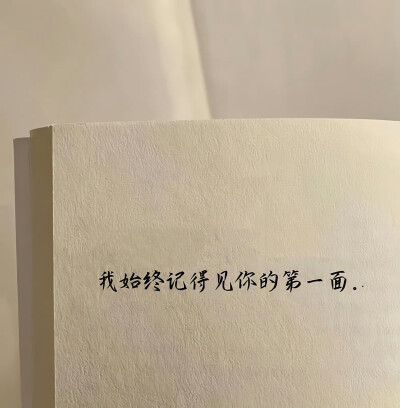 我始终记得见你的第一面..